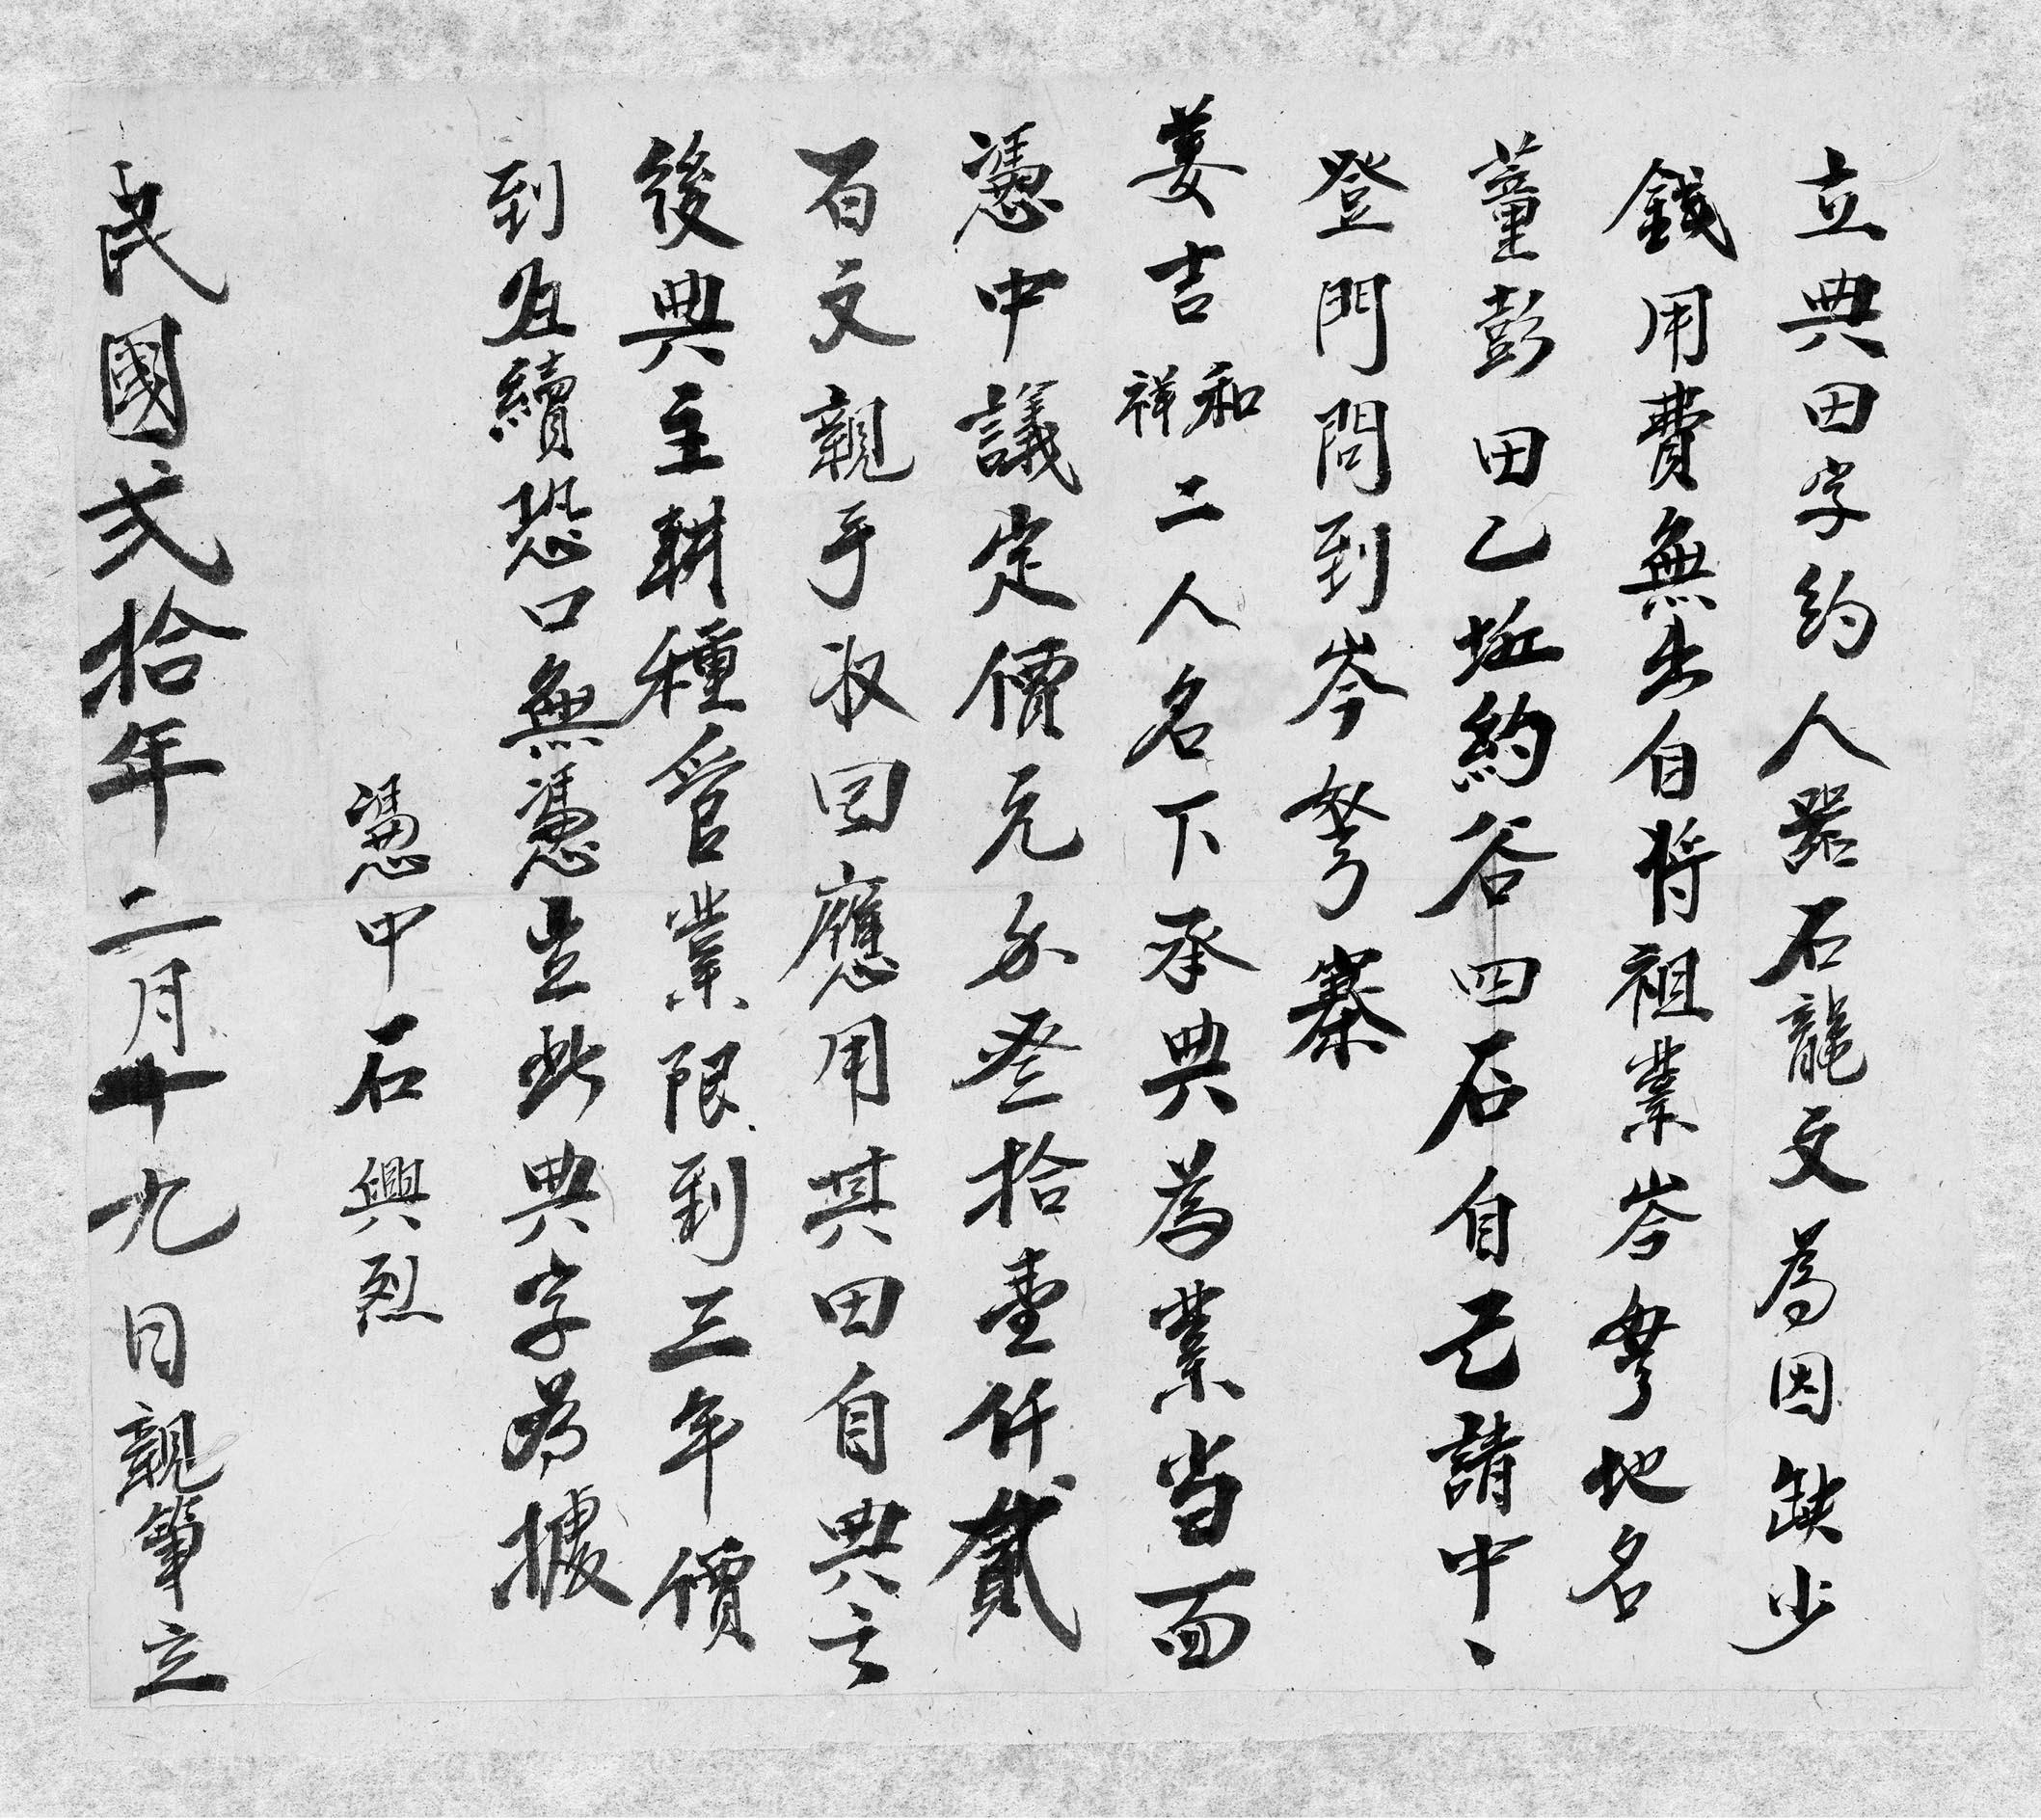 立典田字約人器石龍文為因缺少
錢用費無出自將祖業岑弩地名
薹彭田乙坵約谷四石自己請中、
登門問到岑弩寨
姜吉和祥二人名下承典為業当面
憑中議定價元錢叁拾壹仟貳
百文親手收回應用其田自典之
後典主耕種管業限到三年價
到 續恐口無憑立此典字為據
憑中石興烈
民國弍拾年二月十九日親筆立